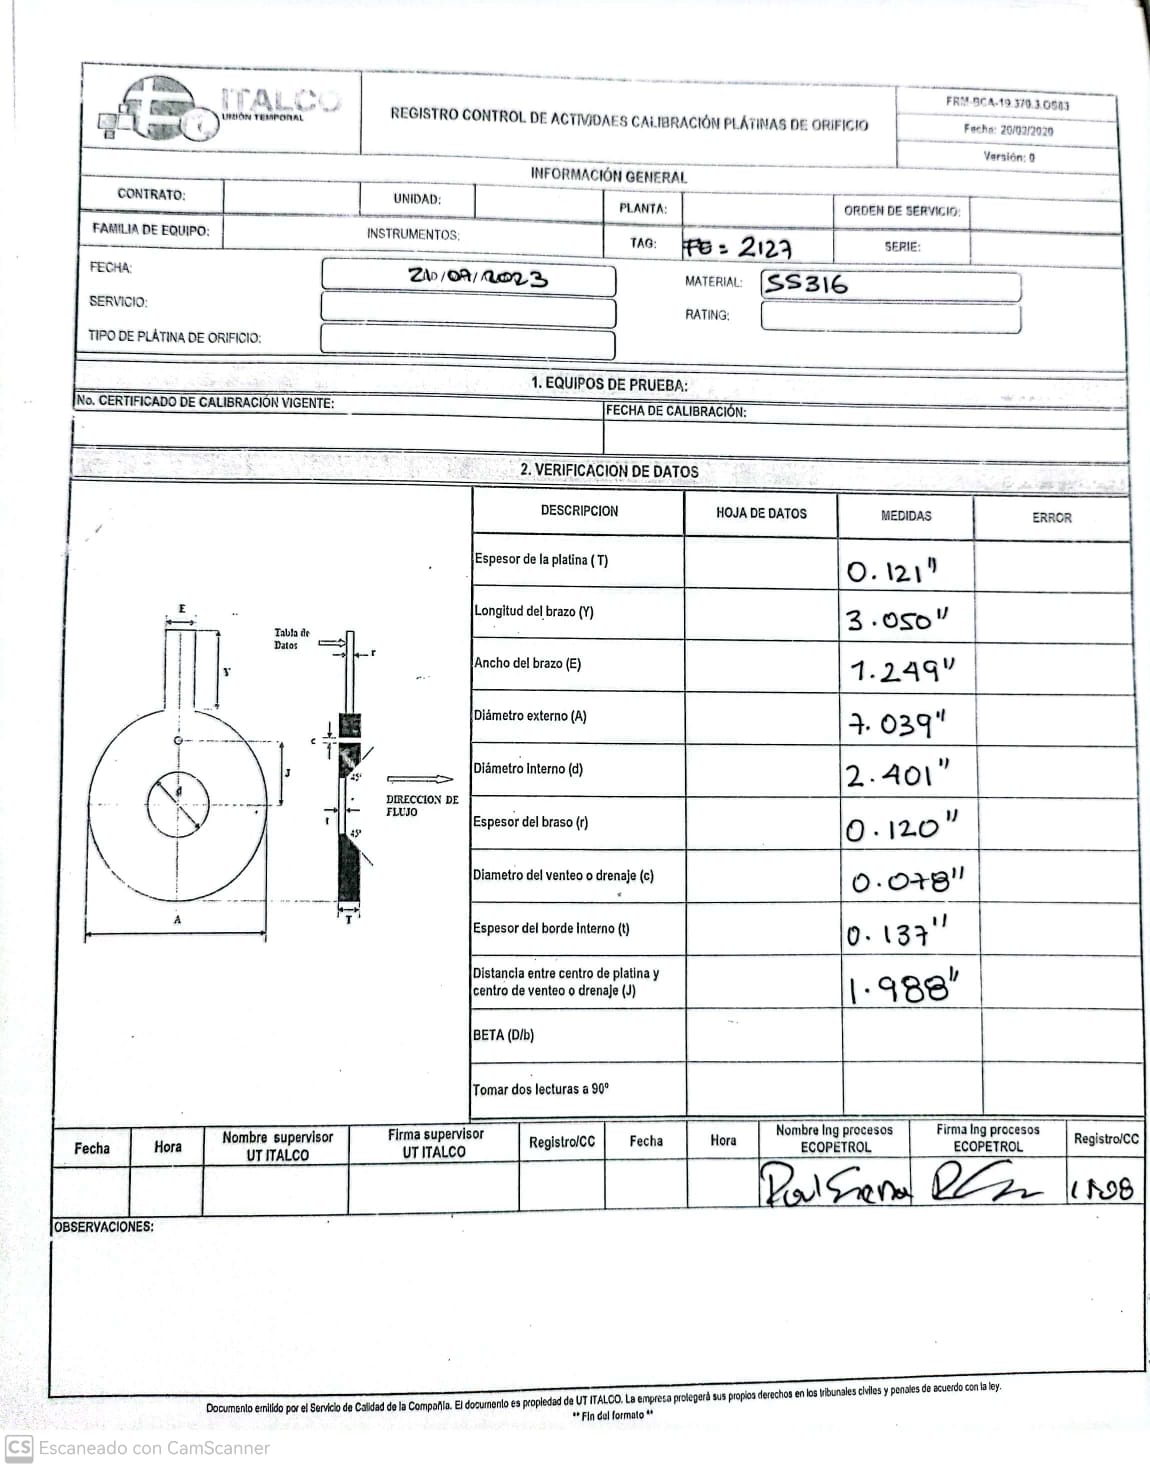 ITALCO
UNIÓN TEMPORAL
REGISTRO CONTROL DE ACTIVIDAES CALIBRACIÓN PLÁTINAS DE ORIFICIO
FRM-BCA-19.370.3.0583
Fecha: 20/02/2020
Versión: 0
INFORMACIÓN GENERAL
CONTRATO:
UNIDAD:
PLANTA:
ORDEN DE SERVICIO:
FAMILIA DE EQUIPO:
INSTRUMENTOS:
TAG: FE = 2127
SERIE:
FECHA: /09/2023
MATERIAL: SS316
SERVICIO:
RATING:
TIPO DE PLÁTINA DE ORIFICIO:
1. EQUIPOS DE PRUEBA:
No. CERTIFICADO DE CALIBRACIÓN VIGENTE:
FECHA DE CALIBRACIÓN:
2. VERIFICACION DE DATOS
DESCRIPCION HOJA DE DATOS MEDIDAS ERROR
Espesor de la platina ( T) 0.121"
Longitud del brazo (Y) 3.050"
Ancho del brazo (E) 1.249"
Diámetro externo (A) 7.039"
Diámetro Interno (d) 2.401"
Espesor del braso (r) 0.120"
Diametro del venteo o drenaje (c) 0.078"
Espesor del borde Interno (t) 0.137"
Distancia entre centro de platina y
centro de venteo o drenaje (J) 1.988"
BETA (D/b)
Tomar dos lecturas a 90º
E
Tabla de
Datos
r
Y
c
J
45º
d
DIRECCION DE
FLUJO
t
45º
A
T
Fecha
Hora
Nombre supervisor
UT ITALCO
Firma supervisor
UT ITALCO
Registro/CC
Fecha
Hora
Nombre Ing procesos
ECOPETROL
Firma Ing procesos
ECOPETROL
Registro/CC
OBSERVACIONES:
Documento emitido por el Servicio de Calidad de la Compañía. El documento es propiedad de UT ITALCO. La empresa protegerá sus propios derechos en los tribunales civiles y penales de acuerdo con la ley.
** Fin del formato **
CS Escaneado con CamScanner